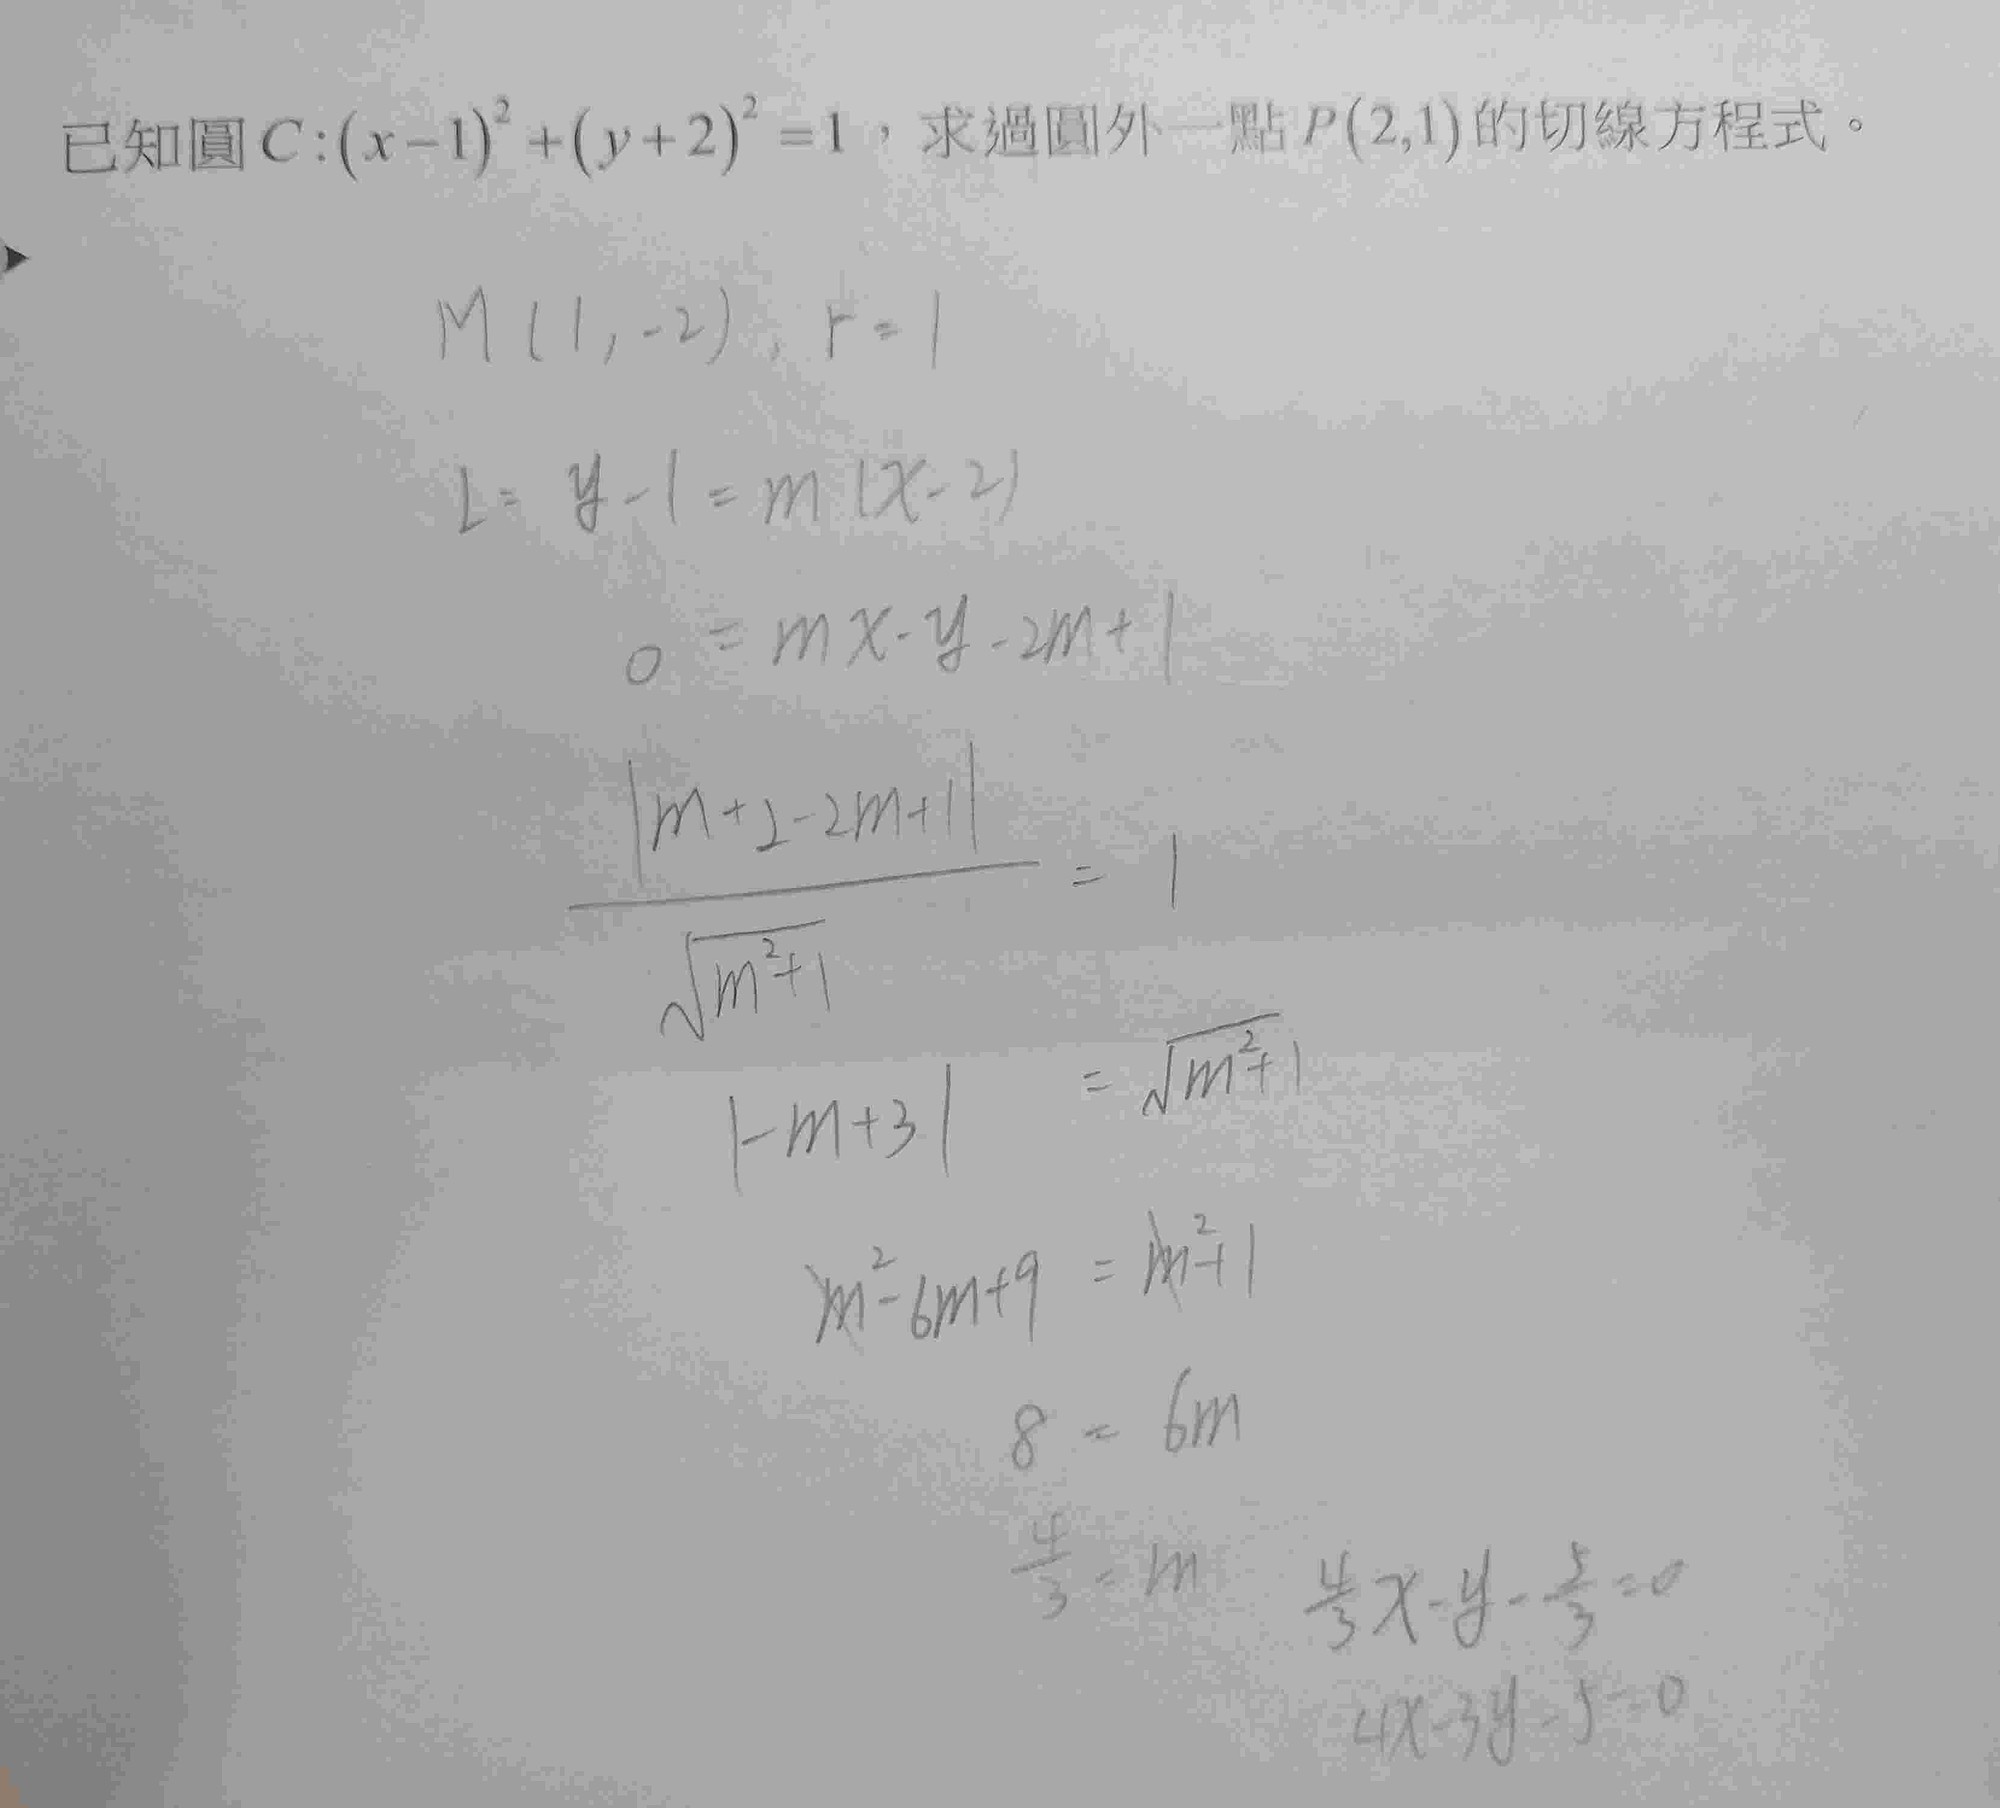 已知圓C:(x-1)²+(y+2)²=1，求過圓外一點P(2,1)的切線方程式。
M(1,-2), r=1
L= y-1=m(x-2)
0=mx-y-2m+1
|m+2-2m+1|/√(m²+1) = 1
|-m+3| = √(m²+1)
m²-6m+9 = m²+1
8 = 6m
4/3 = m
4/3x-y-5/3=0
4x-3y-5=0